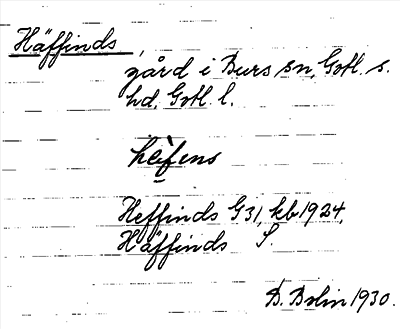 Häffinds,
gård i Burs sn, Gotl. s.
hd, Gotl. l.
hèfens
Heffinds G31, kb 1924,
Häffinds S.
D. Bolin 1930.